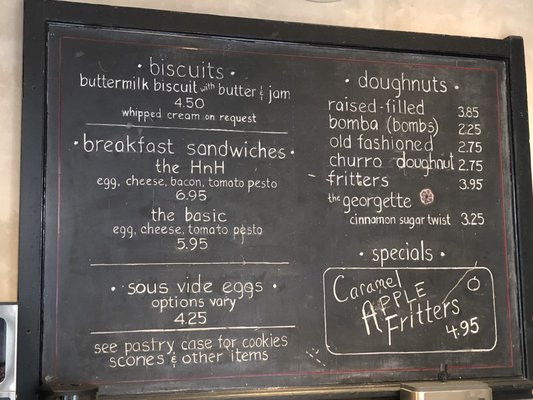 · biscuits ·
buttermilk biscuit with butter & jam
4.50
whipped cream on request
· breakfast sandwiches ·
the HnH
egg, cheese, bacon, tomato pesto
6.95
the basic
egg, cheese, tomato pesto
5.95
· sous vide eggs ·
options vary
4.25
see pastry case for cookies
scones & other items
· doughnuts ·
raised-filled 3.85
bomba (bombs) 2.25
old fashioned 2.75
churro doughnut 2.75
fritters 3.95
the georgette
cinnamon sugar twist 3.25
· specials ·
Caramel
APPLE
Fritters
4.95